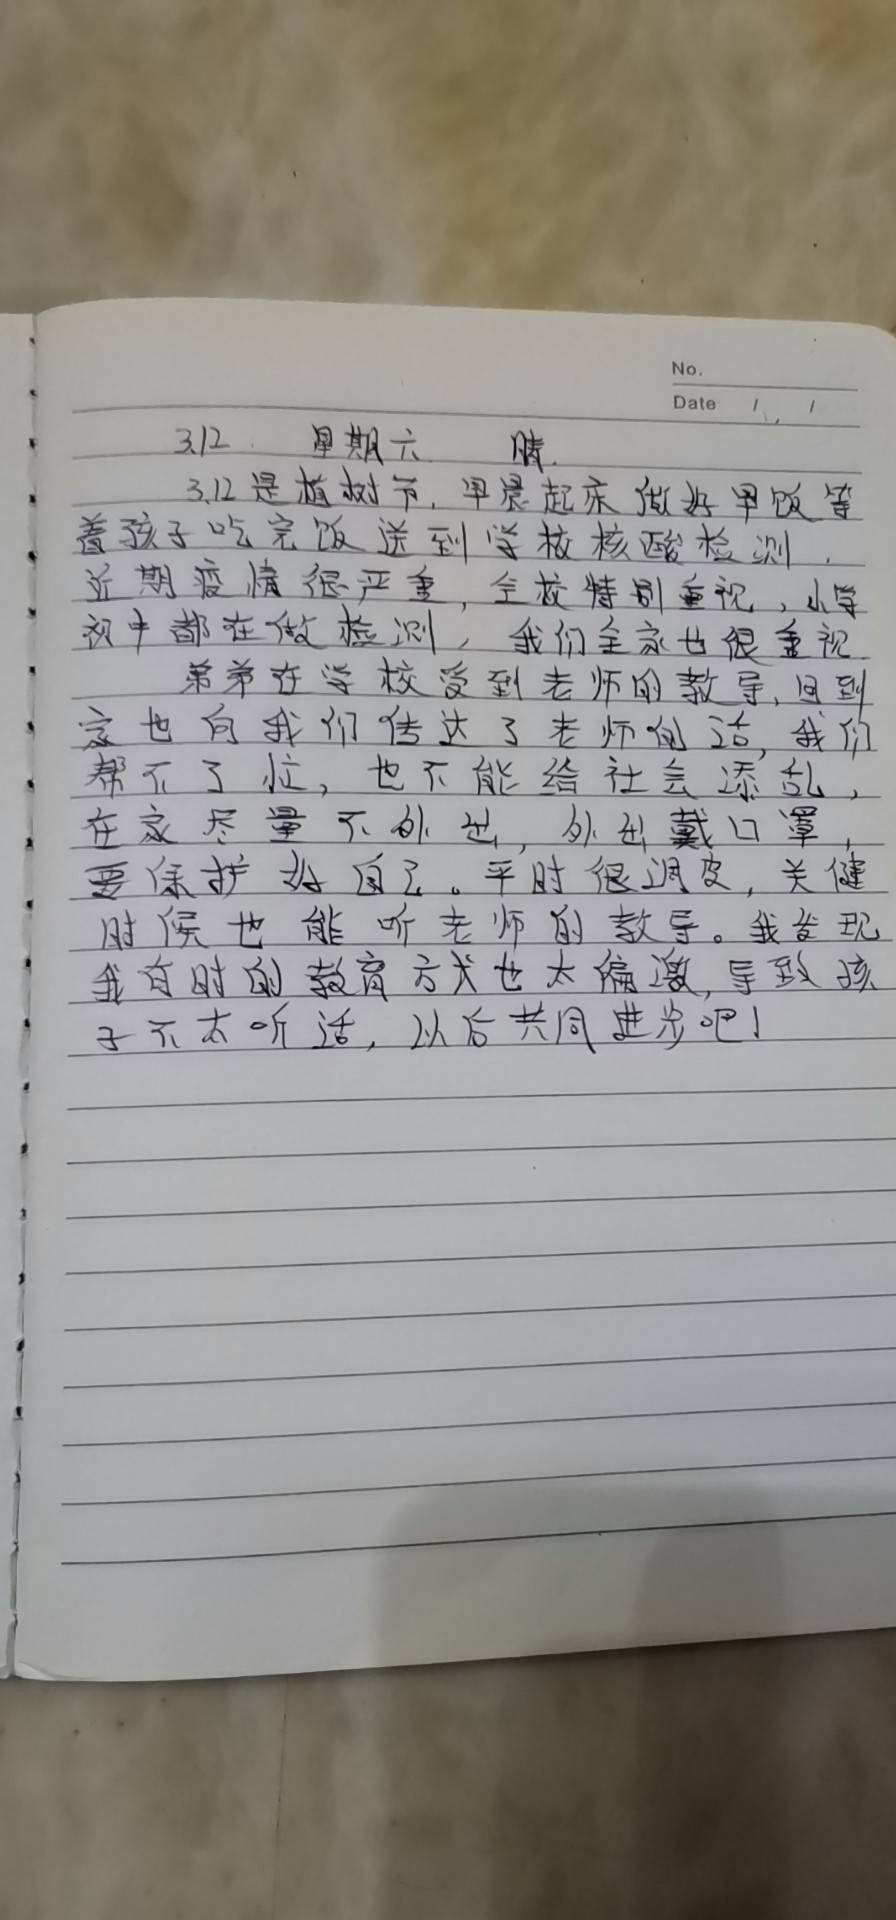 No.
Date / /
3.12 星期六 晴.
3.12是植树节,早晨起床做好早饭等
着孩子吃完饭送到学校核酸检测.
近期疫情很严重,全校特别重视,小学
初中都在做检测,我们全家也很重视
弟弟在学校受到老师的教导,回到
家也向我们传达了老师的话,我们
帮不了忙,也不能给社会添乱,
在家尽量不外出,外出戴口罩,
要保护好自己。平时很调皮,关健
时候也能听老师的教导。我发现
我有时的教育方式也太偏激,导致孩
子不太听话,以后共同进步吧!